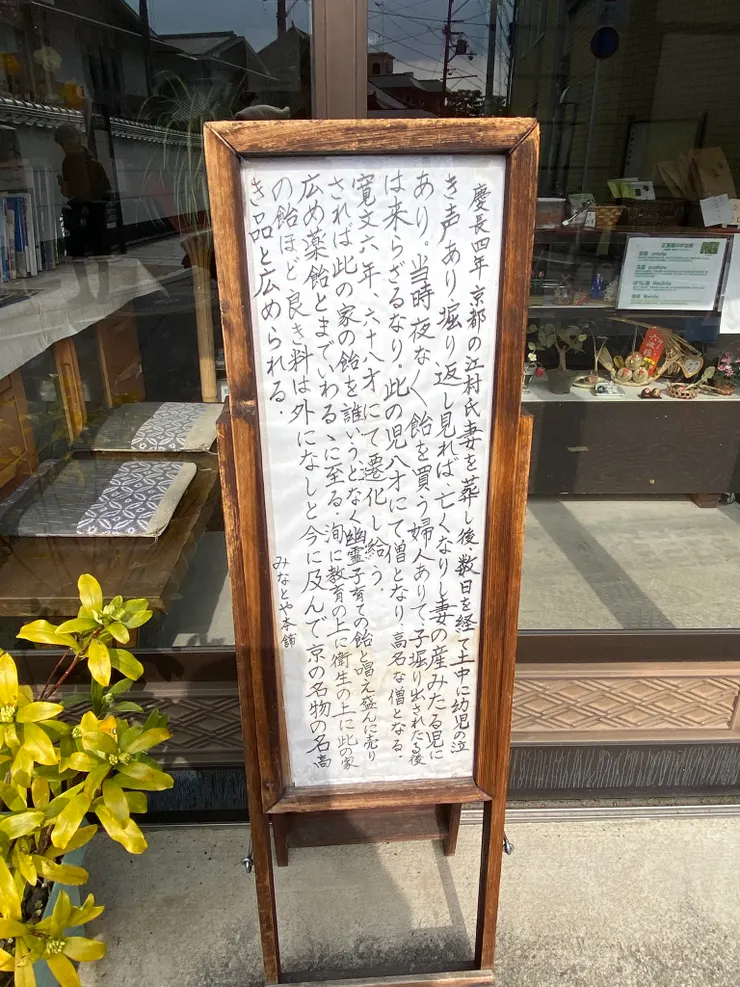 慶長四年 京都の江村氏妻を葬し後、数日を経て土中に幼児の泣
き声あり堀り返し見れば亡くなりし妻の産みたる児に
あり。当時夜な〱飴を買う婦人ありて、子堀り出されたる後
は来らざるなり。此の児八才にて僧となり、高名な僧となる。
寛文六年、六十八才にて遷化し給う
されば此の家の飴を誰いうとなく幽霊子育ての飴と唱え盛んに売り
広め薬飴とまでいわるゝに至る。洵に教育の上に衛生の上に此の家
の飴ほど良き料は外になしと今に及んで京の名物の名高
き品と広められる。
みなとや本舗